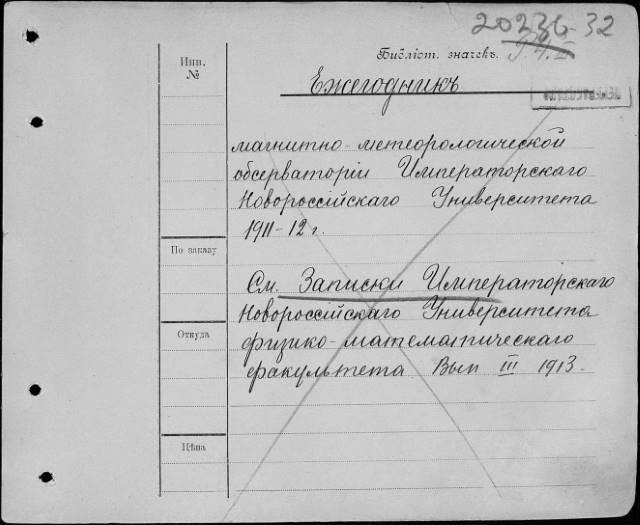 20236-32
Библіот. значекъ.
Инв.
№
Ежегодникъ
магнитно-метеорологической
обсерваторіи Императорскаго
Новороссійскаго Университета
1911-12 г.
По заказу
См. Записки Императорскаго
Новороссійскаго Университета
Откуда
физико-математическаго
факультета Вып III 1913.
Цѣна